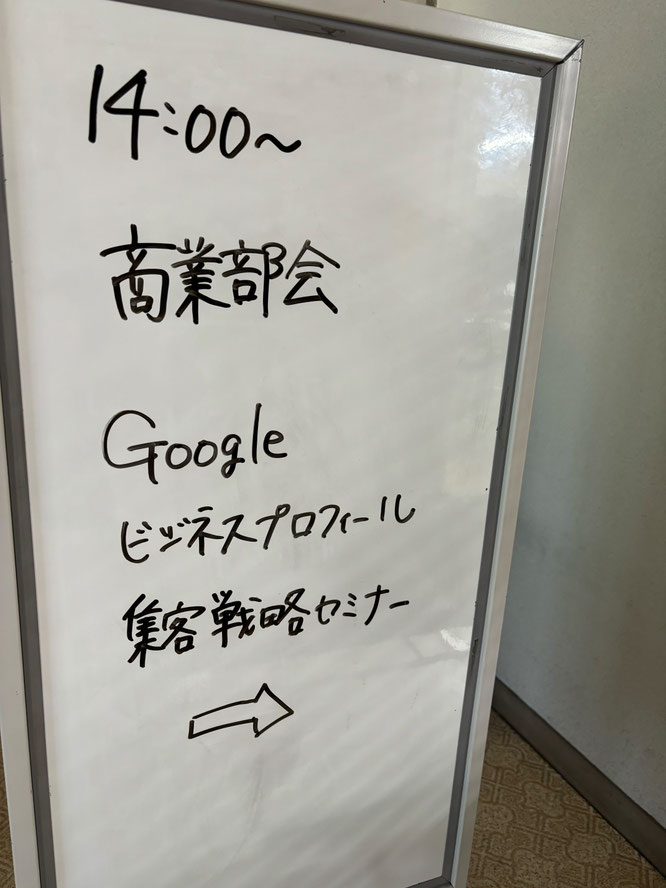 14:00~
商業部会
Google
ビジネスプロフィール
集客戦略セミナー